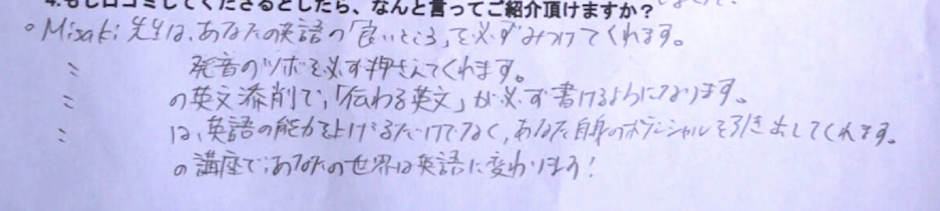 4.もし口コミしてくださるとしたら、なんと言ってご紹介頂けますか？
。Misaki先生は、あなたの英語の「良いところ」を必ずみつけてくれます。
〃 発音のツボを必ず押さえてくれます。
〃 の英文添削で、「伝わる英文」が必ず書けるようになります。
〃 は、英語の能力を上げるだけでなく、あなた自身のポテンシャルを引き出してくれます。
の講座で、あなたの世界は英語に変わります！